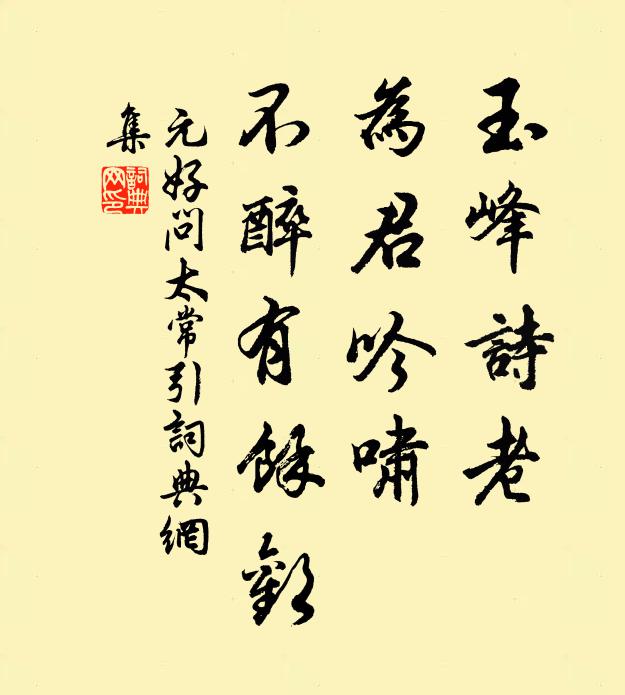 玉峰詩老
為君吟嘯
不醉有餘歡
元好问太常引詞典網
集
詞典
网印